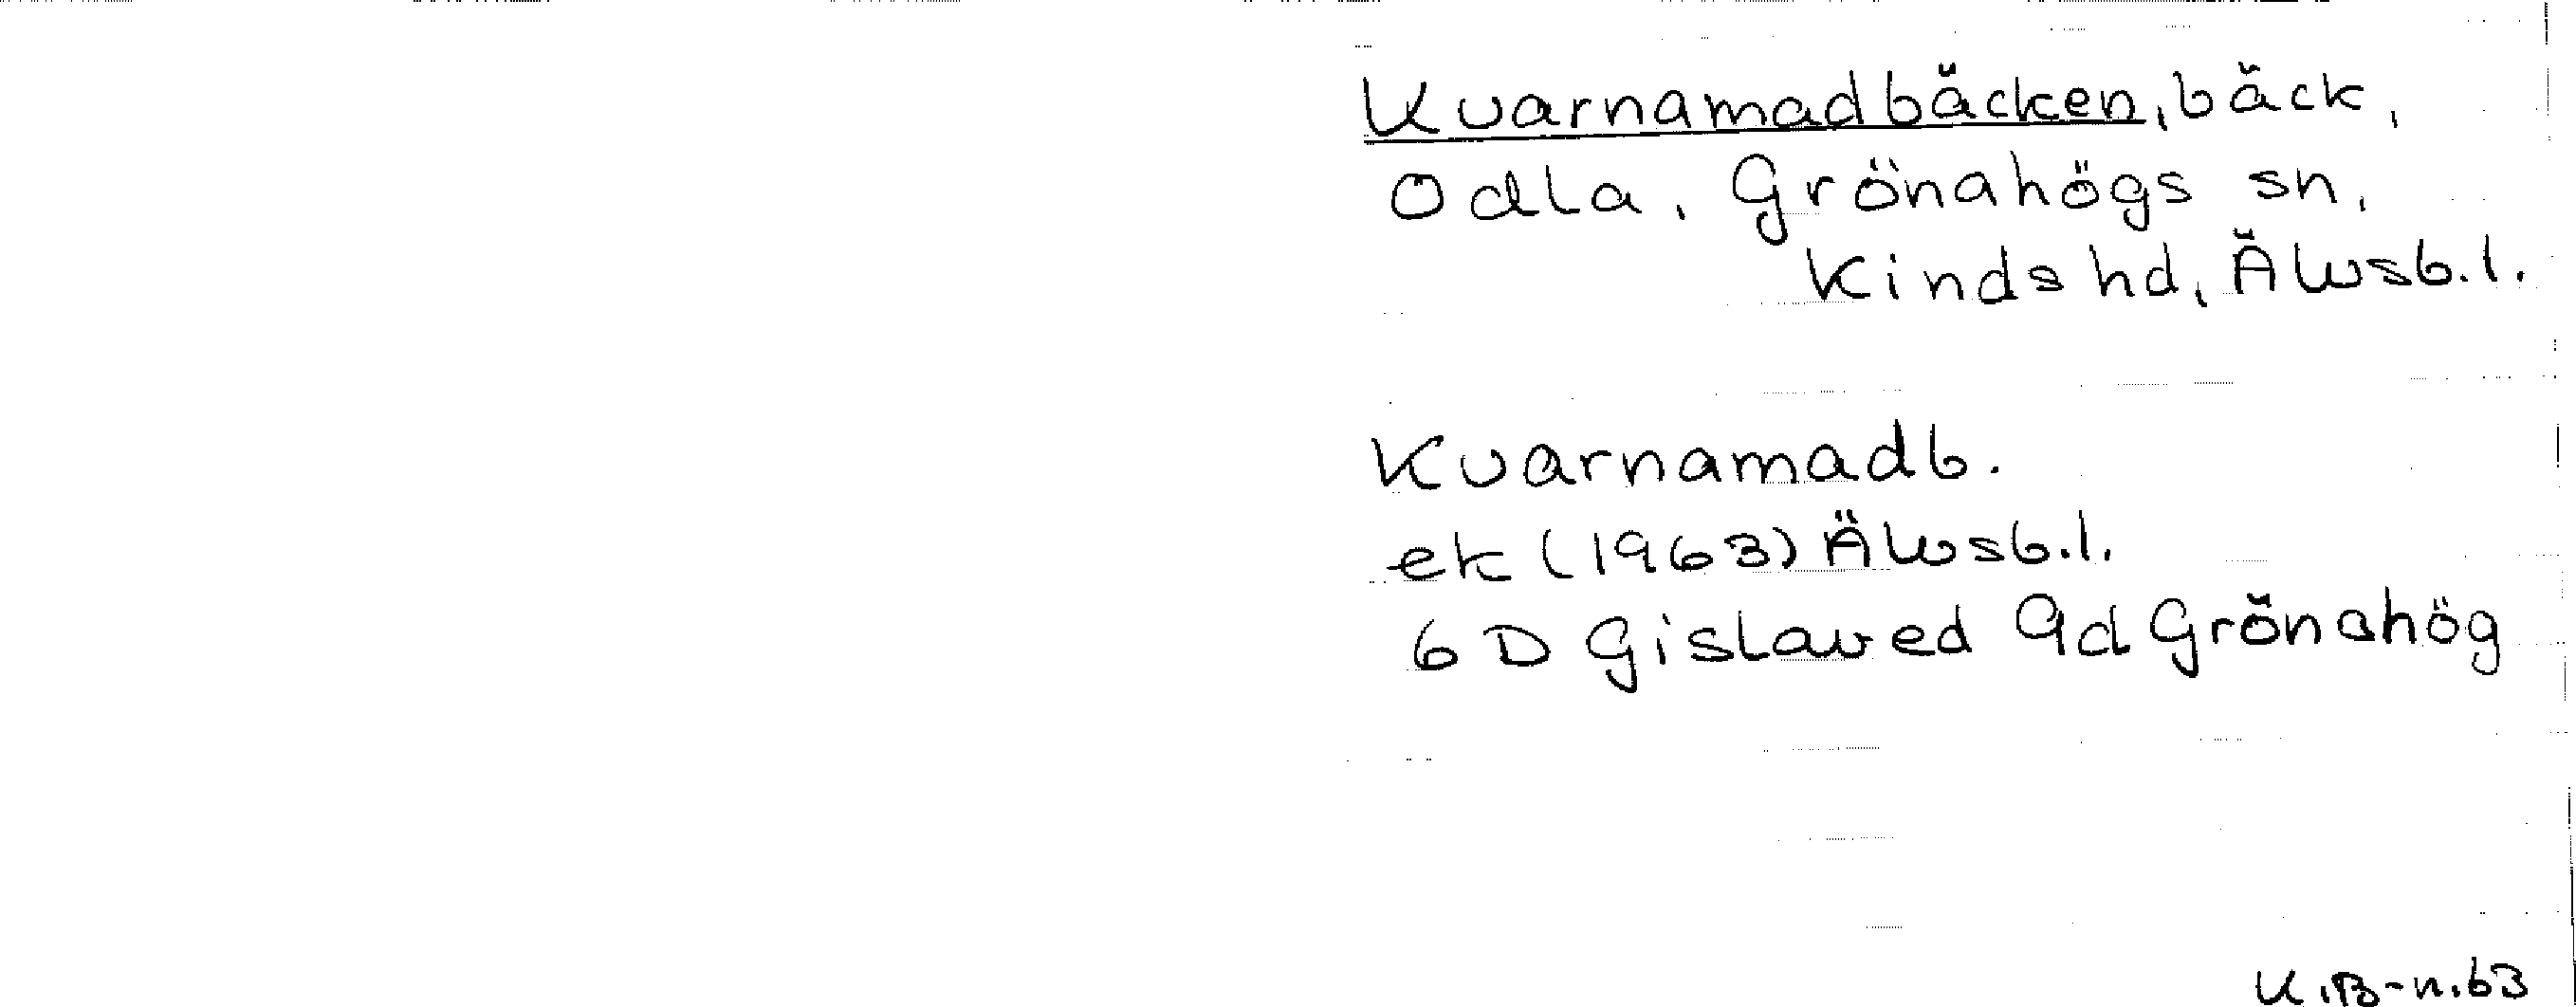 Kvarnamadbäcken, bäck,
Odla, Grönahögs sn,
Kinds hd, Älvsb.l.
Kvarnamadb.
ek (1963) Älvsb.l.
6D Gislaved 9d Grönahög
K.B-n.63